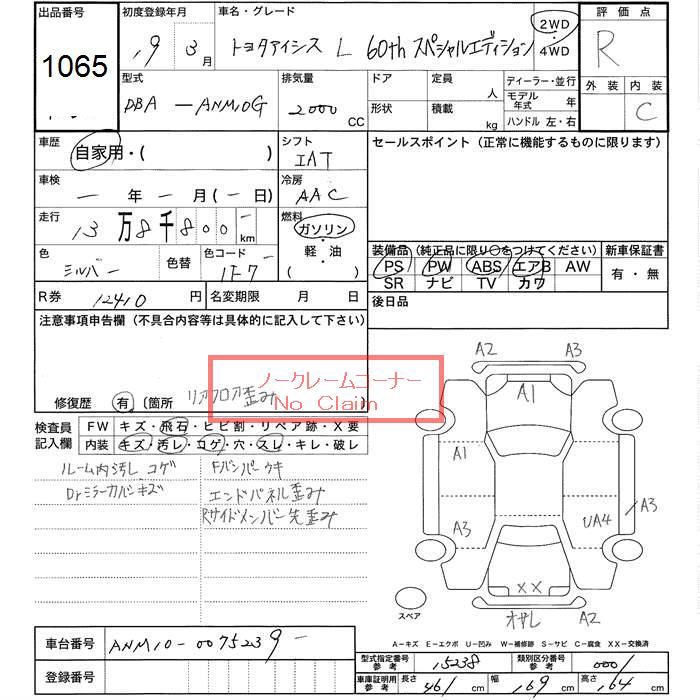 出品番号
1065
初度登録年月
19 3月
車名・グレード
トヨタアイシス L 60th スペシャルエディション
2WD
・
4WD
評価点
R
外装 内装
C
型式
DBA －ANM10G
排気量
2000 CC
ドア
形状
定員 人
積載 kg
ディーラー・並行
モデル年式 年
ハンドル 左・右
車歴
自家用・( )
シフト
IAT
セールスポイント（正常に機能するものに限ります）
車検
－年－月(－日)
冷房
AAC
走行
13万8千800 km
燃料
ガソリン
・
軽・油
( )
色
シルバー
色替
色コード
1F7
装備品（純正品に限り○をつけてください）
PS PW ABS エアB AW
SR ナビ TV カワ
新車保証書
有・無
R券 12410円
名変期限 月 日
後日品
注意事項申告欄（不具合内容等は具体的に記入して下さい）
ノークレームコーナー
No Claim
修復歴 有（箇所 リアフロア歪み
検査員記入欄
FW キズ・飛石・ヒビ割・リペア跡・X要
内装 キズ・汚レ・コゲ・穴・スレ・キレ・破レ
ルーム内汚し コゲ
Drミラーカバーキズ
Fバンパーウキ
エンドパネル歪み
Rサイドメンバー先歪み
A2 A3
A1
A1
A3
A3
UA4
XX
A2
スペア
A－キズ E－エクボ U－凹み W－補修跡 S－サビ C－腐食 XX－交換済
車台番号 ANM10-0075239
登録番号
型式指定番号 参考 15238
類別区分番号 参考 0001
車庫証明用 参考 長さ 461 cm 幅 169 cm 高さ 164 cm